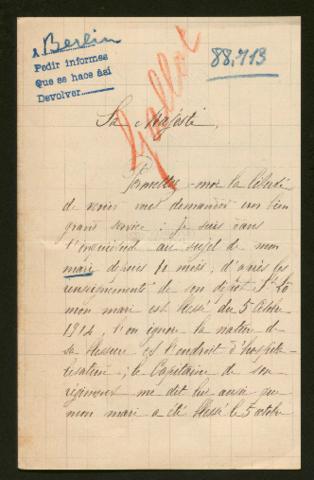 A Berlin
Pedir informes
Que se hace ási
Devolver
88.713
Gallot
Sa Majesté,
Permettez-moi la liberté
de venir vous demander un bien
grand service : je suis dans
l'inquiétude au sujet de mon
mari depuis 10 mois, d'après les
renseignements de son dépôt St Lô
mon mari est blessé du 5 octobre
1914, l'on ignore la nature de
sa blessure et l'endroit d'hospita-
lisation ; le Capitaine de son
régiment me dit lui aussi que
mon mari a été blessé le 5 octobre